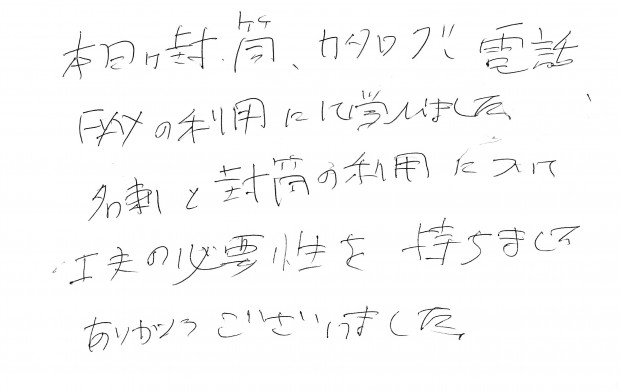 本日は封筒、カタログ、電話
FAXの利用に学びました
名刺と封筒の利用について
工夫の必要性を持ちまして
ありがとうございました。